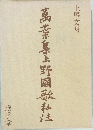 土屋文明
萬葉集上野國歌私注